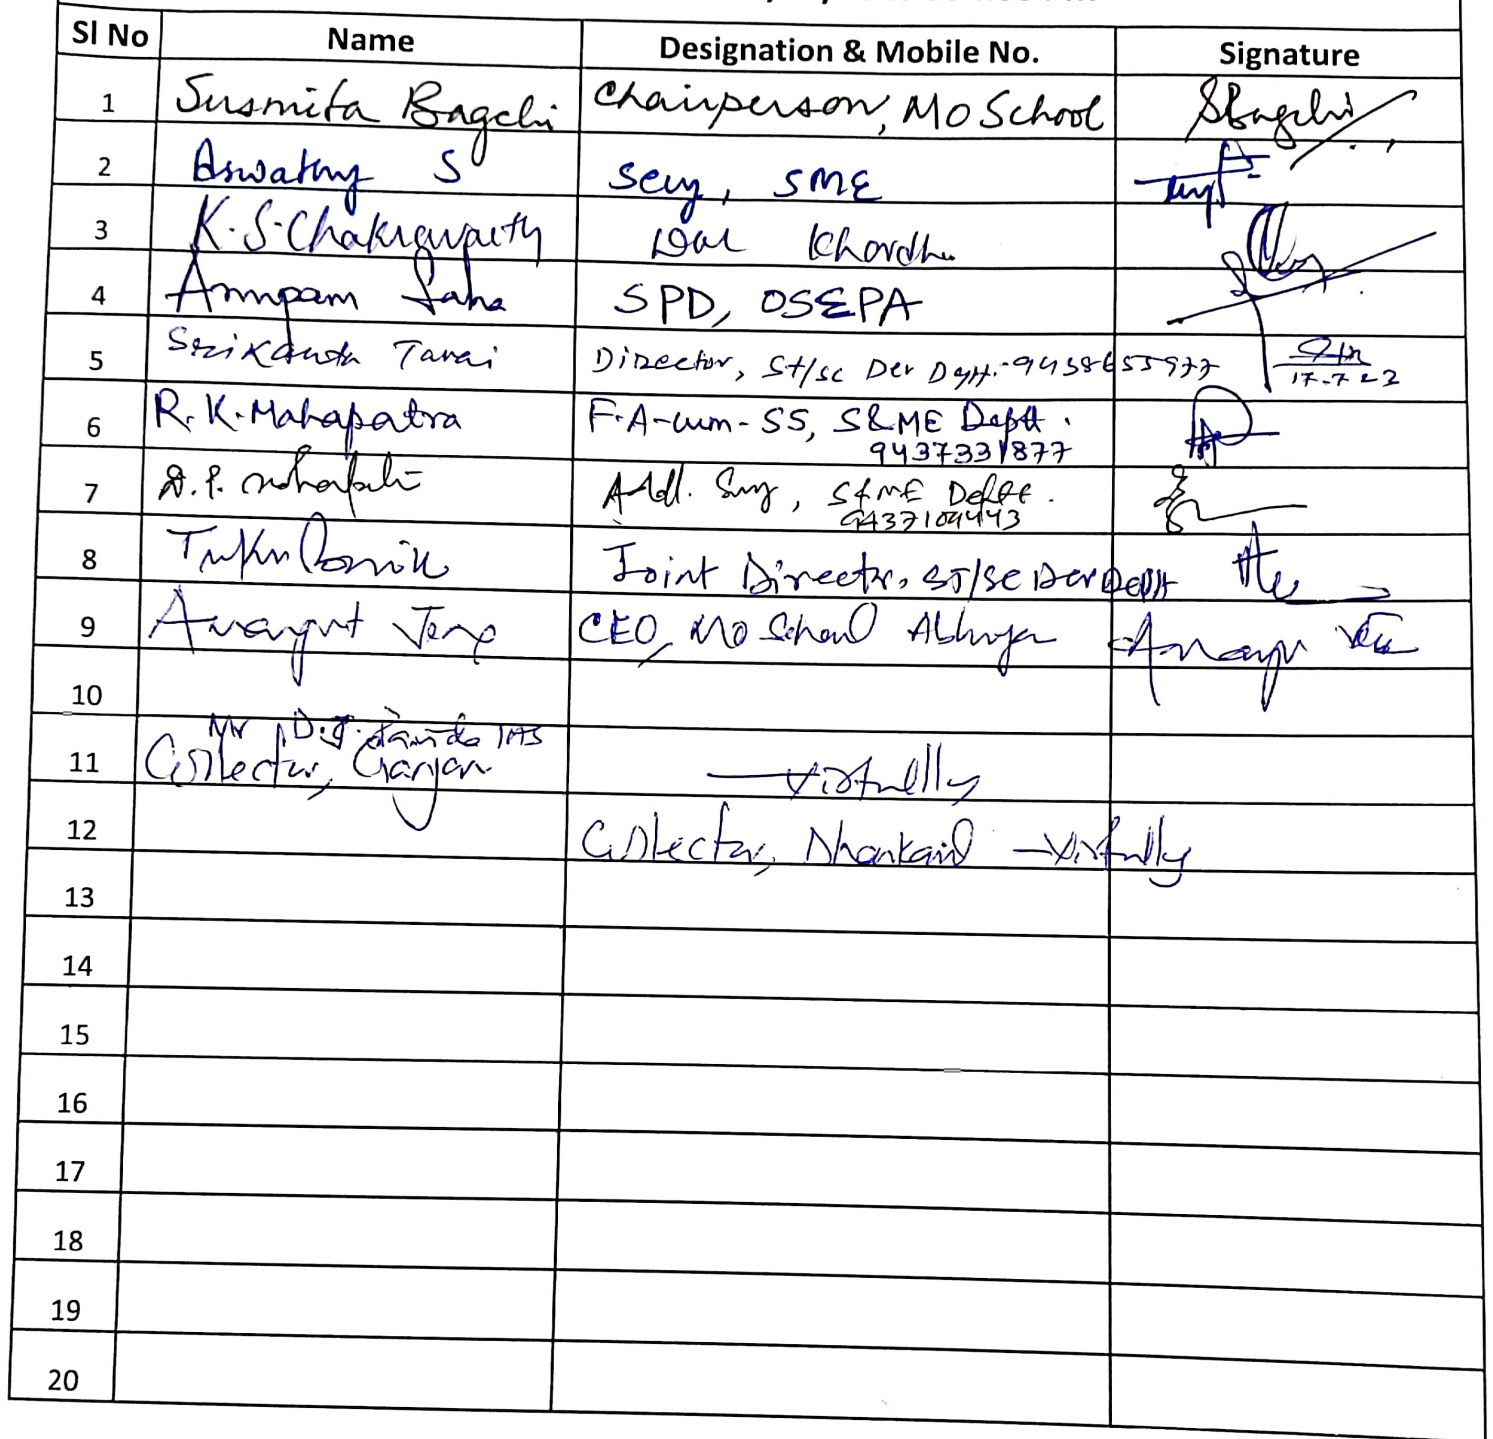 Sl No Name Designation & Mobile No. Signature
1 Susmita Bagchi Chairperson, MO School SBagchi
2 Aswathy S Secy, SME
3 K.S.Chakravarthy Khordha
4 Anupam Saha SPD, OSEPA
5 Srikanta Tarai Director, St/sc Dev Deptt.-9438655977 17-7-23
6 R.K.Mahapatra F.A-cum-SS, S&ME Deptt.
9437331877
7 D.P. Mohapatra Addl. Secy, S&ME Deptt.
9437109443
8 Joint Director, ST/SC Dev Deptt
9 Jena CEO, Mo School Abhiyan
10
Mr D.J. IAS
11 Collector, Ganjam – virtually
12 Collector, Dhenkanal – virtually
13
14
15
16
17
18
19
20